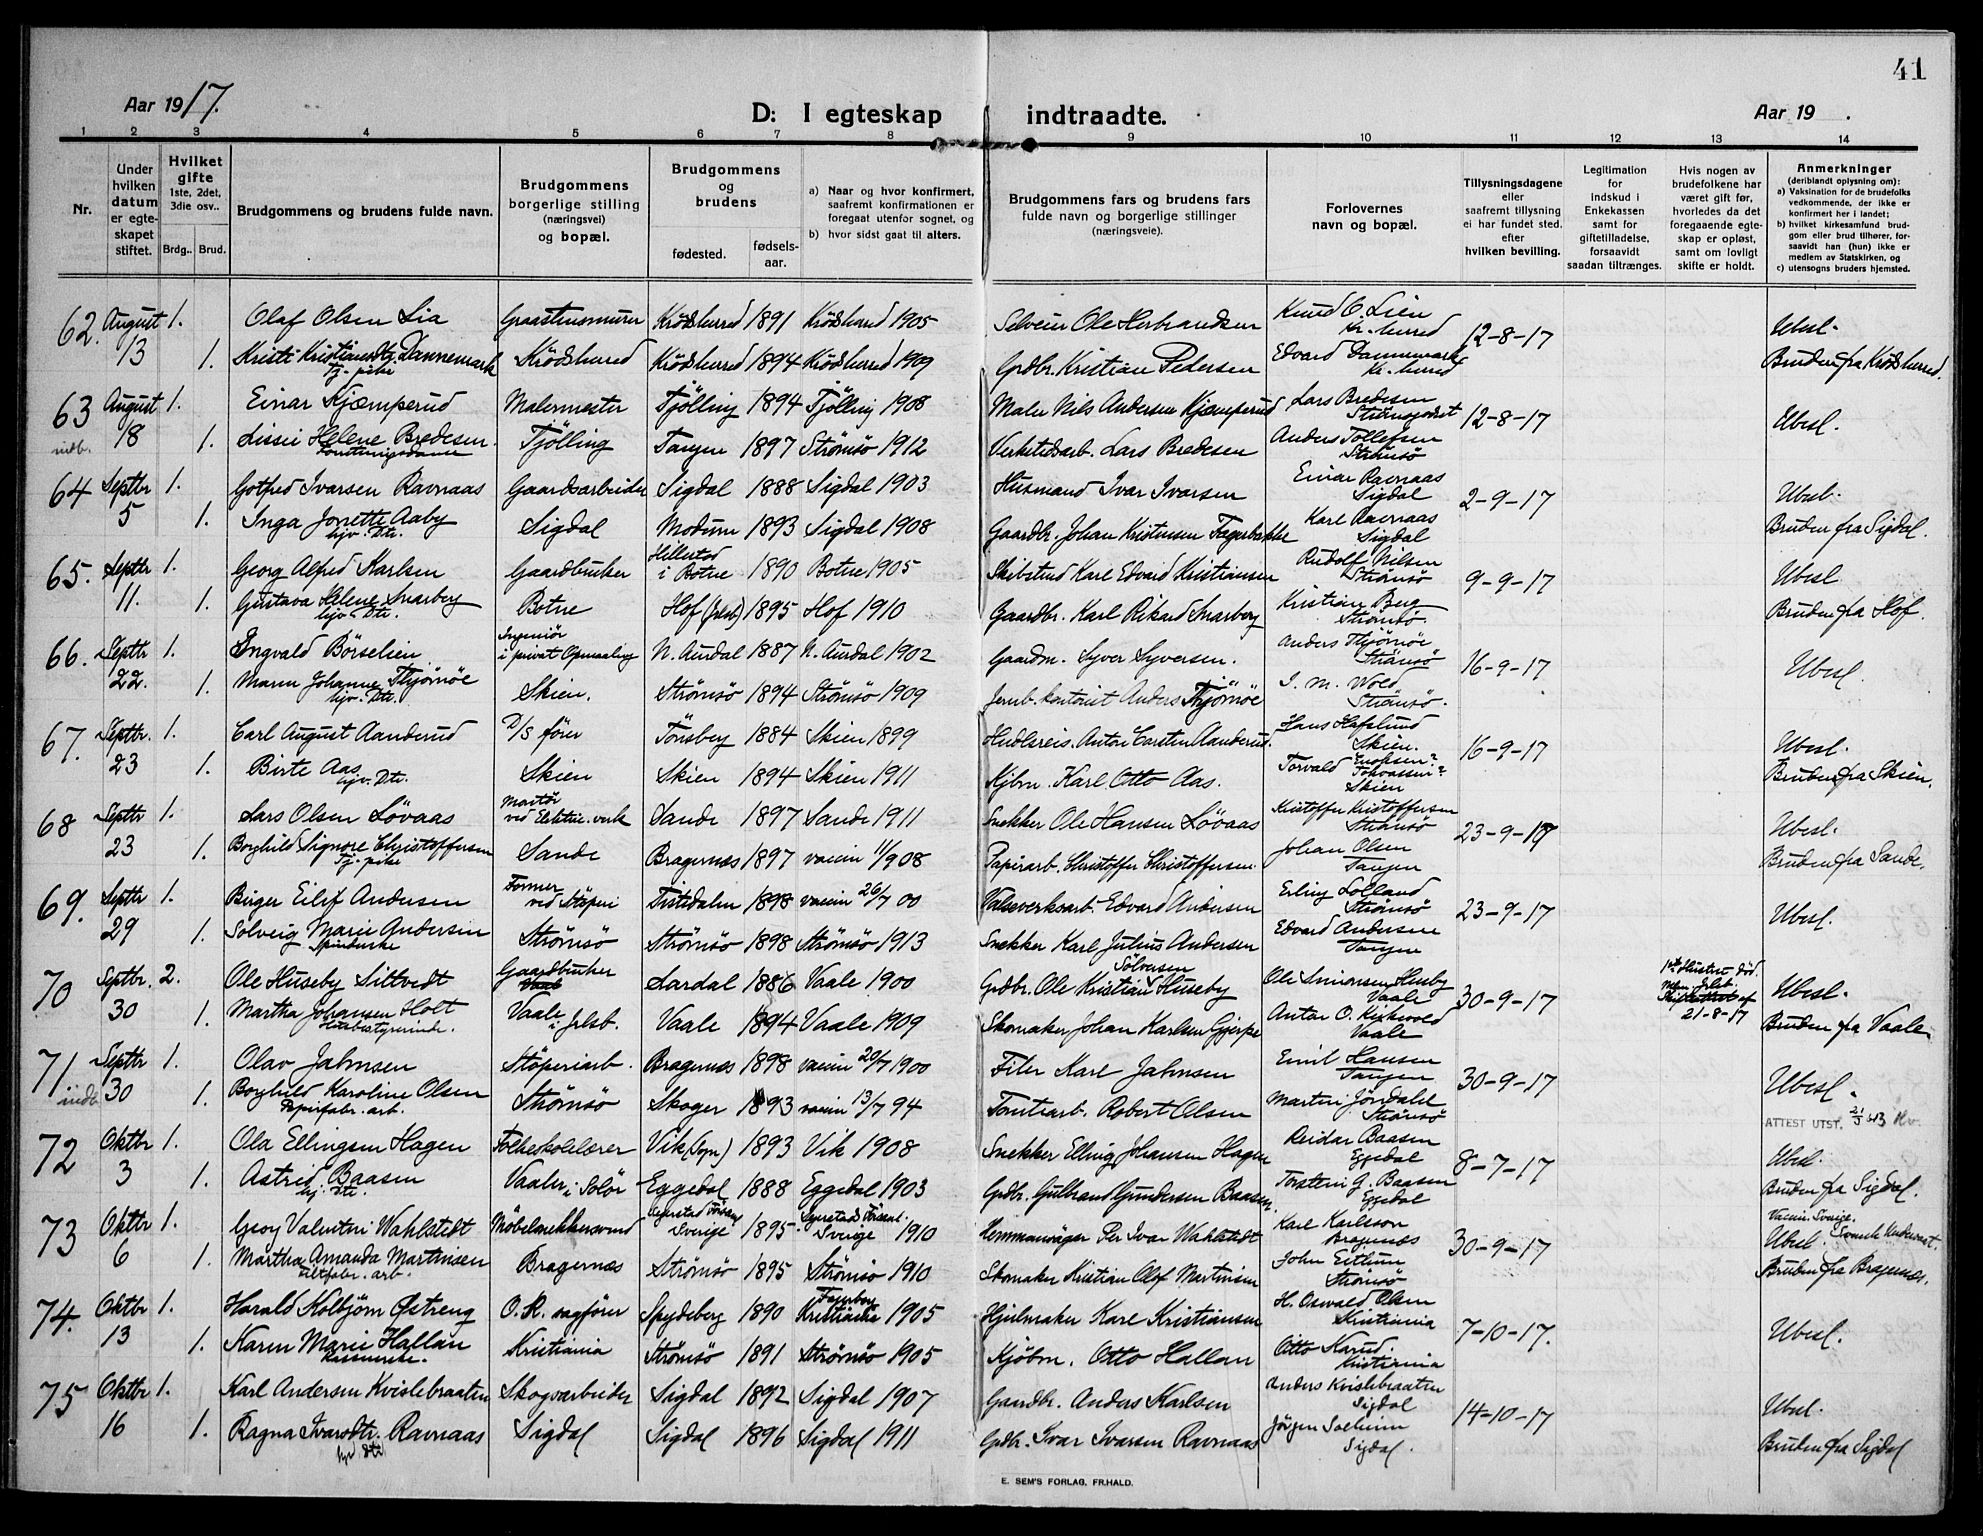 41
Aar 1917.
D: I egteskap indtraadte.
Aar 19 .
1 2 3 4 5 6 7 8 9 10 11 12 13 14
Nr.
Under hvilken datum er egteskapet stiftet.
Hvilket gifte 1ste, 2det, 3die osv..
Brdg.. Brud.
Brudgommens og brudens fulde navn.
Brudgommens borgerlige stilling (næringsvei) og bopæl.
Brudgommens og brudens
fødested. fødselsaar.
a) Naar og hvor konfirmert, saafremt konfirmationen er foregaat utenfor sognet, og
b) hvor sidst gaat til alters.
Brudgommens fars og brudens fars fulde navn og borgerlige stillinger (næringsveie).
Forlovernes navn og bopæl.
Tillysningsdagene eller saafremt tillysning ei har fundet sted. efter hvilken bevilling.
Legitimation for Indskud i Enkekassen samt for giftetilladelse, forsaavidt saadan tiltrænges.
Hvis nogen av brudefolkene har været gift før, hvorledes da det foregaaende egteskap er opløst, samt om lovligt skifte er holdt.
Anmerkninger (deriblandt oplysning om):
a) Vaksination for de brudefolks vedkommende, der ikke er konfirmert her i landet;
b) hvilket kirkesamfund brudgom eller brud tilhører, forsaavidt han (hun) ikke er medlem av Statskirken, og
c) utensogns bruders hjemsted.
62. August 1. Olaf Olsen Lia Graastensmurer Krødsherred 1891 Krødsherred 1905 Selveier Ole Herbrandsen Knud O. Lien Kr.herred 12-8-17 Ubesl.
13 1. Kristi Kristiansdtr. Dannemark Tj. pike Krødsherred Krødsherred 1894 Krødsherred 1909 Grdbr. Kristian Pedersen Edvard Dannemark Kr.herred Bruden fra Krødsherred.
63 August 1. Einar Kjæmperud Malermester Tjølling 1894 Tjølling 1908 Maler Nils Andersen Kjæmperud Lars Bredesen Strømsgodset 12-8-17 Ubesl.
indb. 18 1. Lissie Helene Bredesen Tjølling Tangen 1897 Strømsø 1912 Verkstedsarb. Lars Bredesen Anders Tollefsen Strømsø
64 Septbr 1. Gotfred Ivarsen Ravnaas Gaardsarbeider Sigdal 1888 Sigdal 1903 Husmand Ivar Ivarsen Einar Ravnaas Sigdal 2-9-17 Ubesl.
5 1. Inga Jonette Aaby hjv. Dtr. Sigdal Modum 1893 Sigdal 1908 Gaardbr. Johan Kristensen Fagerbakke Karl Ravnaas Sigdal Bruden fra Sigdal.
65. Septbr 1. Georg Alfred Karlsen Gaardbruker Hillestad i Botne 1890 Botne 1905 Skibstmd Karl Edvard Kristiansen Rudolf Nilsen Strømsø 9-9-17 Ubesl
11. 1. Gustava Helene Snarberg hjv. Dtr. Botne Hof (Jrlsb) 1895 Hof 1910 Gaardbr. Karl Rikard Snarberg Kristian Berg Strømsø. Bruden fra Hof.
66. Septbr 1. Ingvald Børselien Ingeniør i privat Opmaaling N. Aurdal 1887 N. Aurdal 1902 Gaardm. Syver Syversen. Anders Thjømøe Strømsø 16-9-17 Ubesl.
22. 1. Maren Johanne Thjømøe hjv. Dtr. Skien. Strømsø 1894 Strømsø 1909 Jernb. kontorist Anders Thjømøe I. M. Wold Strømsø.
67. Septbr. 1. Carl August Aanderud D/S fører Tønsberg 1884 Skien 1899 Hndlsreis. Anton Carsten Aanderud. Hans Hafslund Skien. 16-9-17 Ubesl.
23 1. Birte Aas hjv. Dtr. Skien Skien 1894 Skien 1911 Kjbm. Karl Otto Aas. Torvald Enoksen? Skien Bruden fra Skien.
68 Septbr 1. Lars Olsen Løvaas Montør ved Elektric. verk Sande 1897 Sande 1911 Snekker Ole Hansen Løvaas Kristoffer Kristoffersen Strømsø 23-9-17 Ubesl.
23 1. Borghild Signore Christoffersen Tj. pike Sande Bragernæs 1897 vaccin 11/9 08 Papirarb. Christoffer Christoffersen. Johan Olsen Tangen Bruden fra Sande.
69. Septbr 1. Birger Eilif Andersen Former ved Støperi Tistedalen 1898 vaccin 26/7 00 Valseverksarb. Edvard Andersen Erling Lolland Strømsø 23-9-17 Ubesl.
29 1. Solveig Marie Andersen Spinderske Strømsø Strømsø 1898 Strømsø 1913 Snekker Karl Julius Andersen Edvard Andersen Tangen
70 Septbr. 2. Ole Huseby Sittvedt Gaardbruker Sandal 1886 Vaale 1900 Grdbr. Ole Kristian Sølvesen Huseby Ole Simonsen Huseby Vaale 30-9-17 1ste Hustru død. 21-8-17 Ubesl.
30 1. Martha Johansen Holt Husbestyrerinde. Vaale i Jrlsb. Vaale 1894 Vaale 1909 Skomaker Johan Karlsen Gjerpe Anton O. Kirkevold Vaale Bruden fra Vaale
71 Septbr 1. Olav Jahnsen Støperiarb. Bragernæs 1898 vaccin 20/7 1900 Filer Karl Jahnsen Emil Hansen Tangen 30-9-17 Ubesl.
indb 30 1. Borghild Karoline Olsen Papirfabr. arb. Strømsø Skoger 1893 vaccin 13/7 94 Tomtearb. Robert Olsen Martin Jøndahl Strømsø ATTEST UTST.
72 Oktbr 1. Ola Ellingsen Hagen Folkeskolelærer Vik (Sogn) 1893 Vik 1908 Snekker Elling Johansen Hagen Reidar Baasen Eggedal 8-7-17 Ubesl.
3 1. Astrid Baasen hj. Dtr. Vaaler i Solør Eggedal 1888 Eggedal 1903 Grdbr. Gulbrand Gundersen Baasen. Torstein G. Baasen Eggedal Bruden fra Sigdal.
73 Oktbr 1. Georg Valentin Wahlstedt Møbelsnekkersvend Sverige 1895 Sverige 1910 Hemmansäger Per Ivar Wahlstedt Karl Karlsson Bragernæs 30-9-17 Vaccin. Sverige. Ubesl. Svensk Undersaat.
6 1. Martha Amanda Martinsen Filtfabr. arb. Bragernæs Strømsø 1895 Strømsø 1910 Skomaker Kristian Olof Martinsen John Eittun Strømsø Bruden fra Bragernæs.
74. Oktbr 1. Harald Kolbjørn Østreng O. R. sagfører Spydeberg 1890 Fagerborg Kristiania 1905 Hjulmaker Karl Kristiansen H. Oswald Olsen Kristiania 7-10-17. Ubesl.
13 1. Karen Marie Hallan Kasserske. Kristiania Strømsø 1891 Strømsø 1905 Kjøbm. Otto Hallan Otto Karud. Kristiania
75 Oktbr 1. Karl Andersen Kvislebraaten Skogvarbeider Sigdal 1892 Sigdal 1907 Gaardbr. Anders Karlsen Anders Kvislebraaten Sigdal 14-10-17 Ubesl.
16 1. Ragna Ivarsdtr. Ravnaas hjv dtr Sigdal Sigdal 1896 Sigdal 1911 Grdbr. Ivar Ivarsen Ravnaas Jørgen Solheim Sigdal. Bruden fra Sigdal
E. SEM'S FORLAG, FR.HALD.